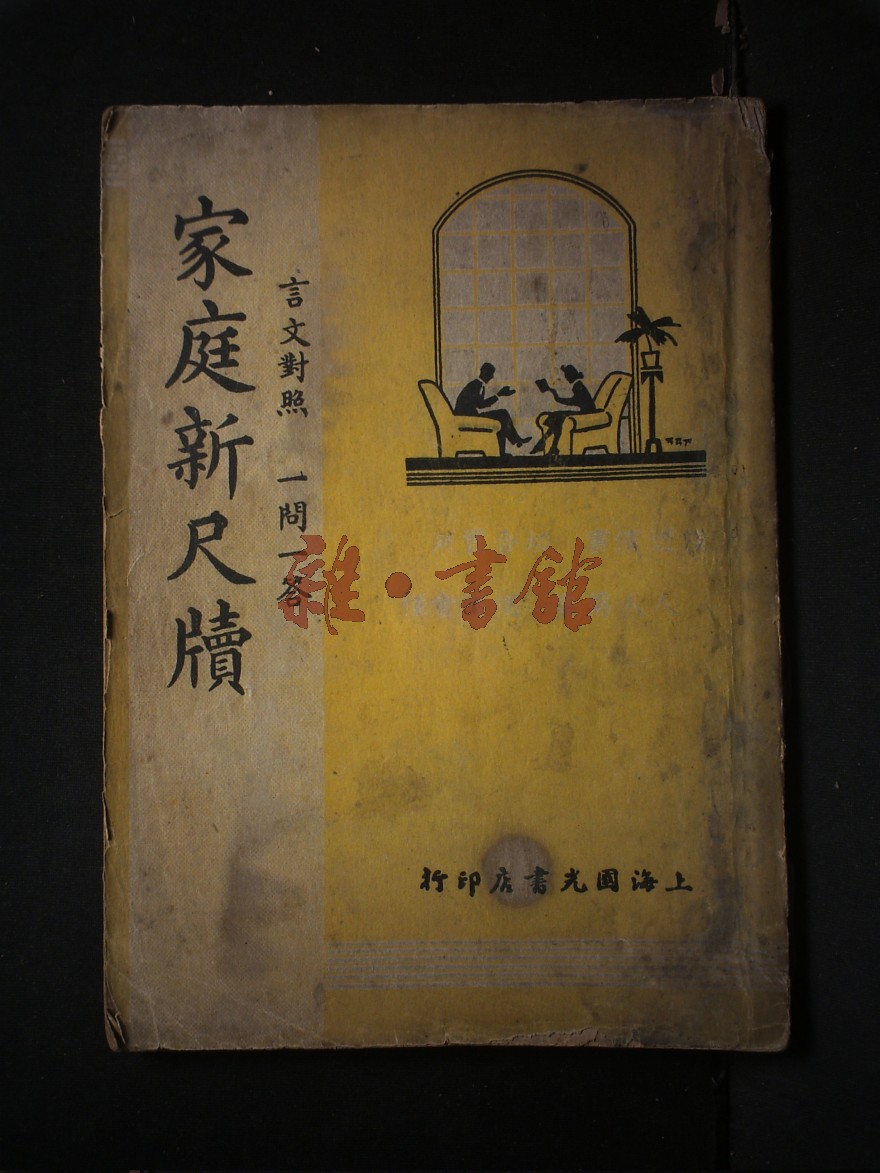 家庭新尺牘
言文對照 一問一答
雜·書館
上海國光書店印行